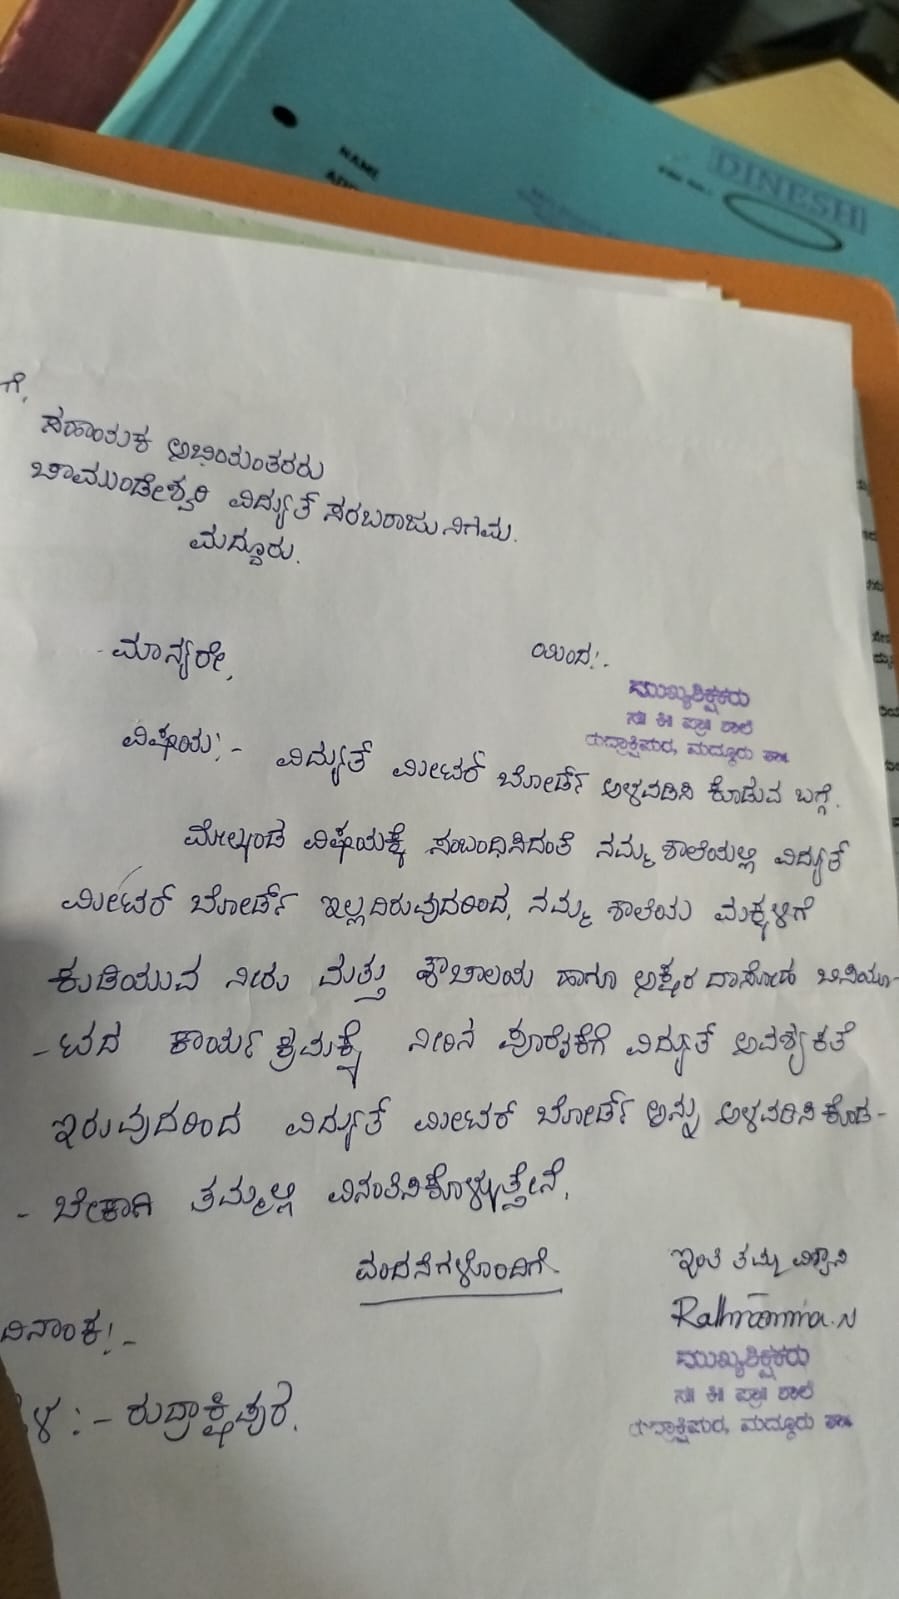 NAME
DINESH
ಗೆ,
ಸಹಾಯಕ ಅಭಿಯಂತರರು
ಚಾಮುಂಡೇಶ್ವರಿ ವಿದ್ಯುತ್ ಸರಬರಾಜು ನಿಗಮ.
ಮದ್ದೂರು.
ಮಾನ್ಯರೇ,
ಯಿಂದ:-
ಮುಖ್ಯಶಿಕ್ಷಕರು
ಸ॥ ಕಿ॥ ಪ್ರಾ॥ ಶಾಲೆ
ರುದ್ರಾಕ್ಷಿಪುರ, ಮದ್ದೂರು ತಾ॥
ವಿಷಯ:- ವಿದ್ಯುತ್ ಮೀಟರ್ ಬೋರ್ಡ್ ಅಳವಡಿಸಿ ಕೊಡುವ ಬಗ್ಗೆ.
ಮೇಲ್ಕಂಡ ವಿಷಯಕ್ಕೆ ಸಂಬಂಧಿಸಿದಂತೆ ನಮ್ಮ ಶಾಲೆಯಲ್ಲಿ ವಿದ್ಯುತ್
ಮೀಟರ್ ಬೋರ್ಡ್ ಇಲ್ಲದಿರುವುದರಿಂದ, ನಮ್ಮ ಶಾಲೆಯ ಮಕ್ಕಳಿಗೆ
ಕುಡಿಯುವ ನೀರು ಮತ್ತು ಶೌಚಾಲಯ ಹಾಗೂ ಅಕ್ಷರ ದಾಸೋಹ ಬಿಸಿಯೂ-
-ಟದ ಕಾರ್ಯಕ್ರಮಕ್ಕೆ ನೀರಿನ ಪೂರೈಕೆಗೆ ವಿದ್ಯುತ್ ಅವಶ್ಯಕತೆ
ಇರುವುದರಿಂದ ವಿದ್ಯುತ್ ಮೀಟರ್ ಬೋರ್ಡ್ ಅನ್ನು ಅಳವಡಿಸಿ ಕೊಡ-
- ಬೇಕಾಗಿ ತಮ್ಮಲ್ಲಿ ವಿನಂತಿಸಿಕೊಳ್ಳುತ್ತೇನೆ.
ವಂದನೆಗಳೊಂದಿಗೆ
ಇಂತಿ ತಮ್ಮ ವಿಶ್ವಾಸಿ
ದಿನಾಂಕ:-
ಮುಖ್ಯಶಿಕ್ಷಕರು
ಸ॥ ಕಿ॥ ಪ್ರಾ॥ ಶಾಲೆ
ರುದ್ರಾಕ್ಷಿಪುರ, ಮದ್ದೂರು ತಾ॥
ಳ :- ರುದ್ರಾಕ್ಷಿಪುರ.